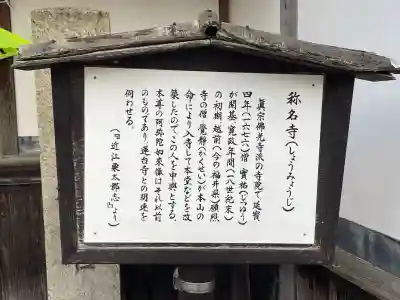 称名寺（しょうみょうじ）
眞宗佛光寺派の寺院で、延宝
四年（一六七六）僧 實祐（じつゆう）
が開基。寛政年間（一八世紀末）
の初期、越前（今の福井県）願照
寺の僧 覺静（かくせい）が本山の
命により入寺して本堂などを改
築したので、この人を中興とする。
本尊の阿弥陀如来像はそれ以前
のものであり、蓮台寺との関連を
伺わせる。
（「近江栗太郡志」より）